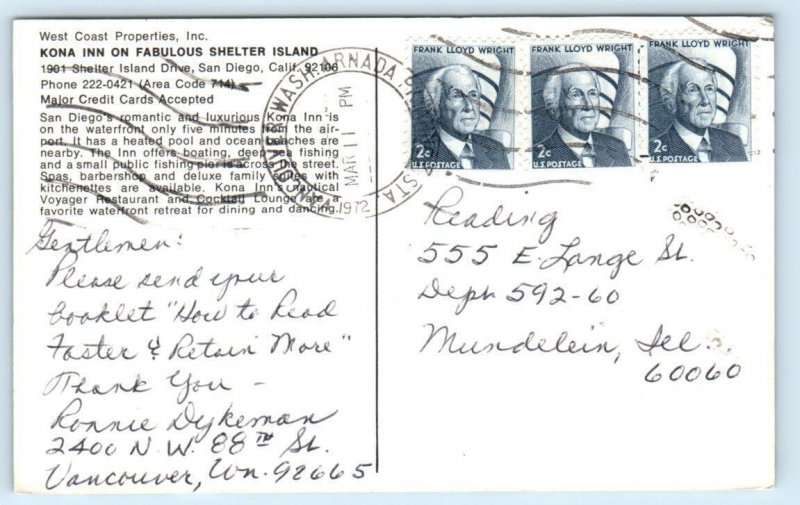 West Coast Properties, Inc.
KONA INN ON FABULOUS SHELTER ISLAND
1901 Shelter Island Drive, San Diego, Calif. 92106
Phone 222-0421 (Area Code 714)
Major Credit Cards Accepted
San Diego's romantic and luxurious Kona Inn is
on the waterfront only five minutes from the air-
port. It has a heated pool and ocean beaches are
nearby. The Inn offers boating, deep sea fishing
and a small public fishing pier is across the street.
Spas, barbershop and deluxe family suites with
kitchenettes are available. Kona Inn's nautical
Voyager Restaurant and Cocktail Lounge are a
favorite waterfront retreat for dining and dancing.
Gentlemen:
Please send your
booklet "How to Read
Faster & Retain More"
Thank You –
Ronnie Dykeman
2400 N.W. 88th St.
Vancouver, Wn. 92665
VANCOUVER WASH.
MAR 11
PM
1972
FRANK LLOYD WRIGHT
2c
U.S. POSTAGE
FRANK LLOYD WRIGHT
2c
U.S. POSTAGE
FRANK LLOYD WRIGHT
2c
U.S. POSTAGE
Reading
555 E. Lange St.
Deph 592-60
Mundelein, Ill.
60060